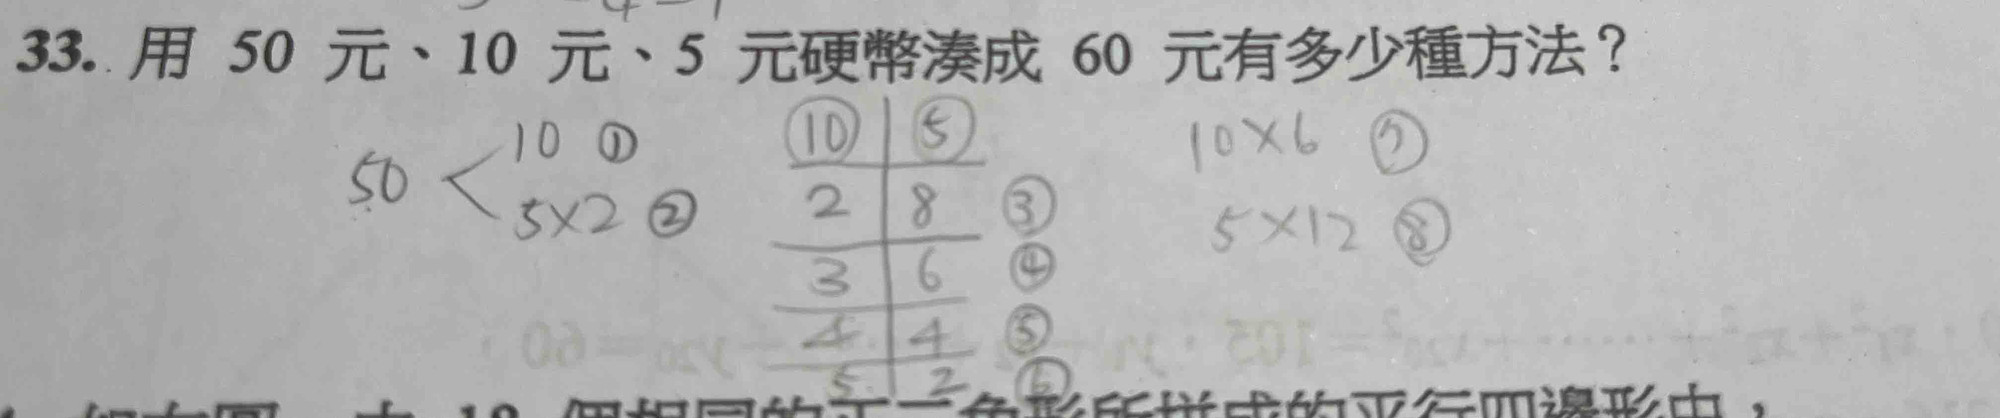 33. 用 50 元、10 元、5 元硬幣湊成 60 元有多少種方法？
50 < 10 ①
5×2 ②
⑩ ⑤
2 8 ③
3 6 ④
4 4 ⑤
5 2 ⑥
10×6 ⑦
5×12 ⑧